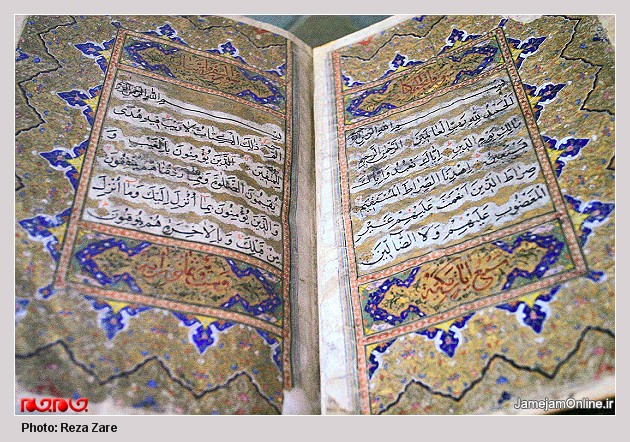 بسم الله الرحمن الرحيم
الحمد لله رب العالمين الرحمن الرحيم
مالك يوم الدين إياك نعبد وإياك
نستعين اهدنا الصراط المستقيم
صراط الذين أنعمت عليهم غير
المغضوب عليهم ولا الضالين
سبع آيات مكية
بسم الله الرحمن الرحيم
الم ذلك الكتاب لا ريب فيه هدى
للمتقين الذين يؤمنون بالغيب و
يقيمون الصلوة ومما رزقناهم ينفقون
والذين يؤمنون بما أنزل إليك وما أنزل
من قبلك وبالآخرة هم يوقنون
JamejamOnline.ir
Photo: Reza Zare